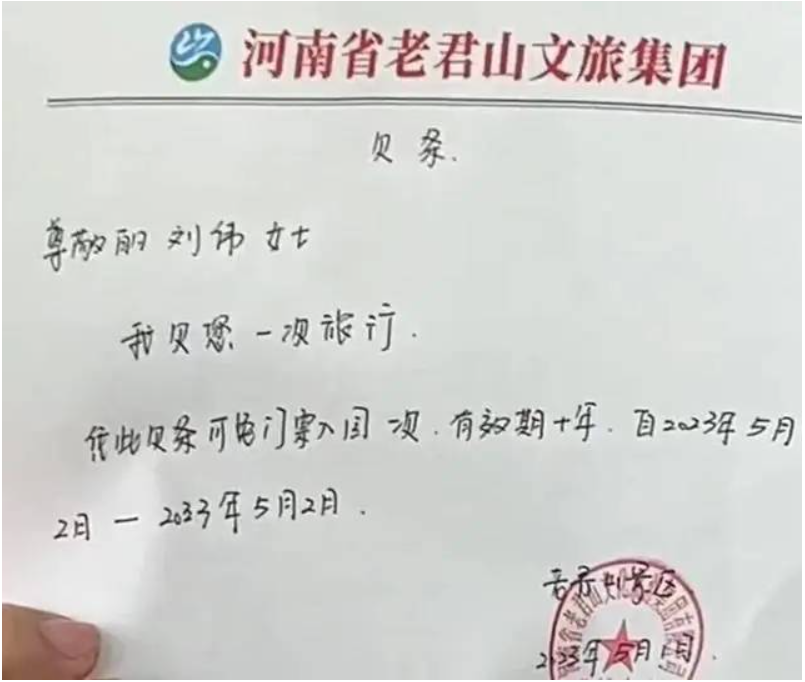 河南省老君山文旅集团
贝条.
尊敬的 刘伟 女士
我贝您一次旅行.
凭此贝条可免门票入园 次. 有效期十年. 自2023年5月
2日 — 2033年5月2日.
老君山景区
2023年5月 日.